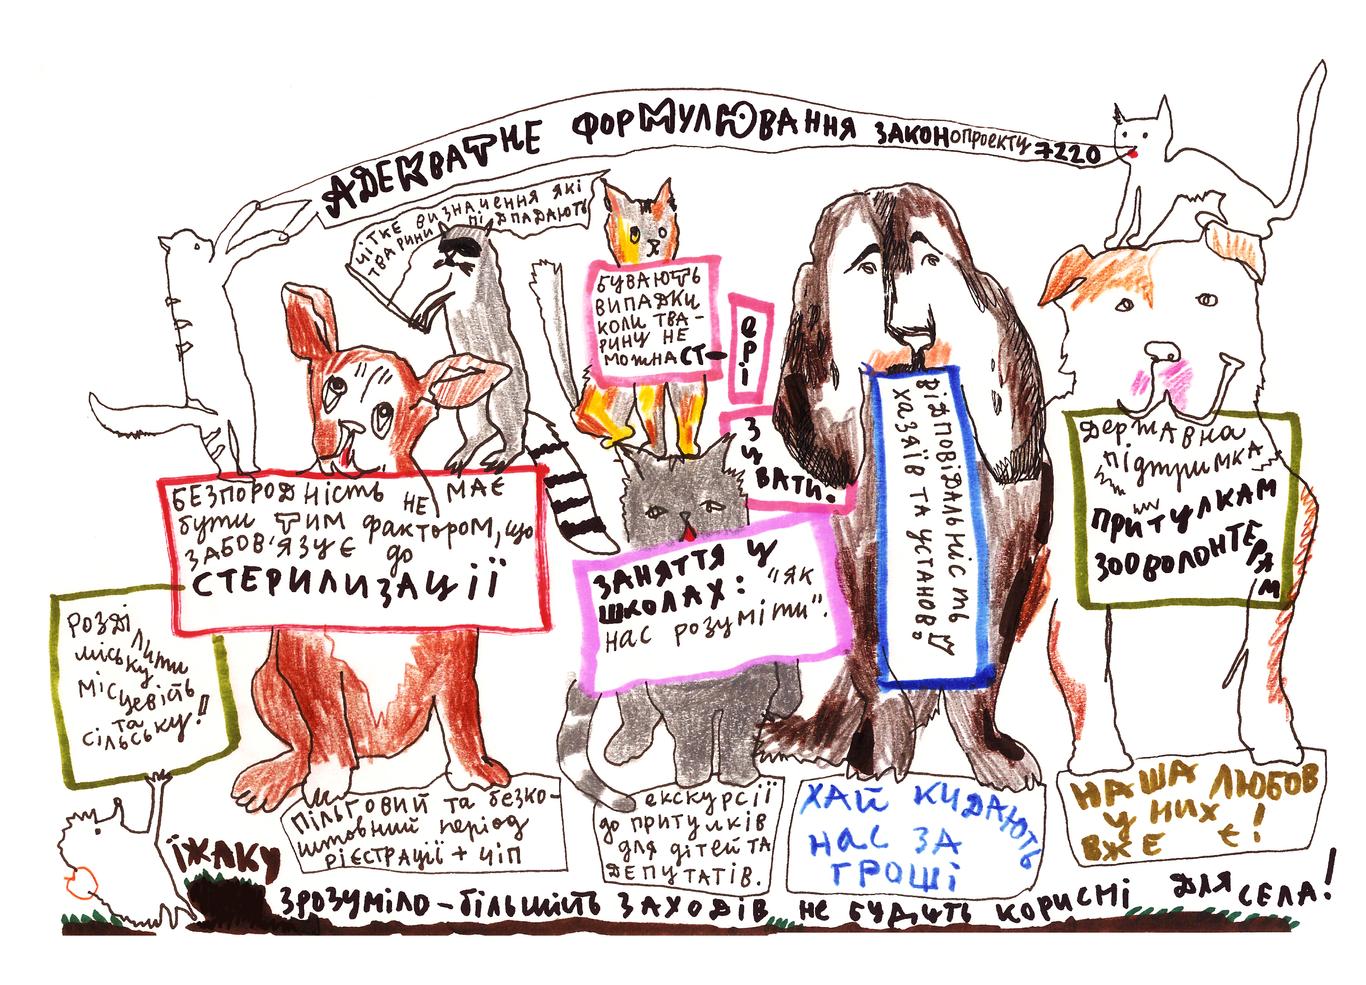 АДЕКВАТНЕ ФОРМУЛЮВАННЯ ЗАКОНОПРОЕКТУ 7220
ЧІТКЕ ВИЗНАЧЕННЯ ЯКІ
ТВАРИНИ ПІДПАДАЮТЬ
БУВАЮТЬ
ВИПАДКИ
КОЛИ ТВА-
РИНУ НЕ
МОЖНА СТ-
ЕРІ
ЗУ
ВАТИ.
БЕЗПОРОДНІСТЬ НЕ МАЄ
бути ТИМ фактором, що
ЗАБОВ'ЯЗУЄ до
СТЕРИЛИЗАЦІЇ
РОЗДІ
лити
міську
місцевість
та
сільську!!
ЗАНЯТТЯ У
ШКОЛАХ: "ЯК
НАС розуміти".
ВІДПОВІДАЛЬНІСТЬ У
ХАЗАЇВ ТА УСТАНОВ.
Державна
підтримка
ПРИТУЛКАМ
ЗООВОЛОНТЕРАМ
ПІЛЬГОВИЙ та безко-
штовний період
рієстрації + чіп
екскурсії
до притулків
для дітей та
ДЕПУТАТІВ.
ХАЙ КИДАЮТЬ
НАС ЗА
ГРОШІ
НАША ЛЮБОВ
У НИХ
ВЖЕ Є!
ЇЖАКУ
ЗРОЗУМІЛО - більшість ЗАХОДІВ НЕ БУДУТЬ КОРИСНІ ДЛЯ СЕЛА!